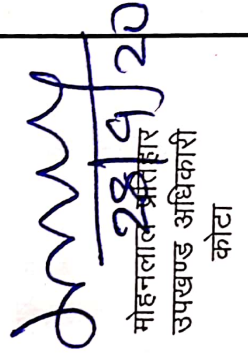 28/9/20
मोहनलाल प्रतिहार
उपखण्ड अधिकारी
कोटा